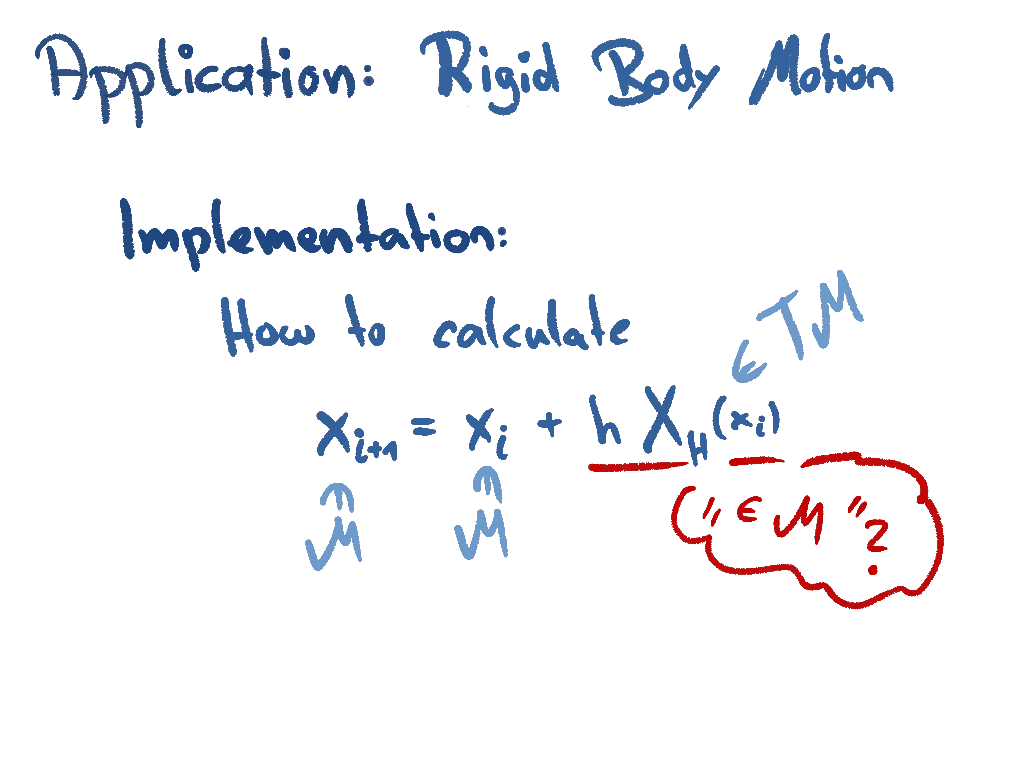 Application: Rigid Body Motion
Implementation:
How to calculate
∈ TM
x_{i+1} = x_i + h X_H(x_i)
∈ M
∈ M
("∈ M"?